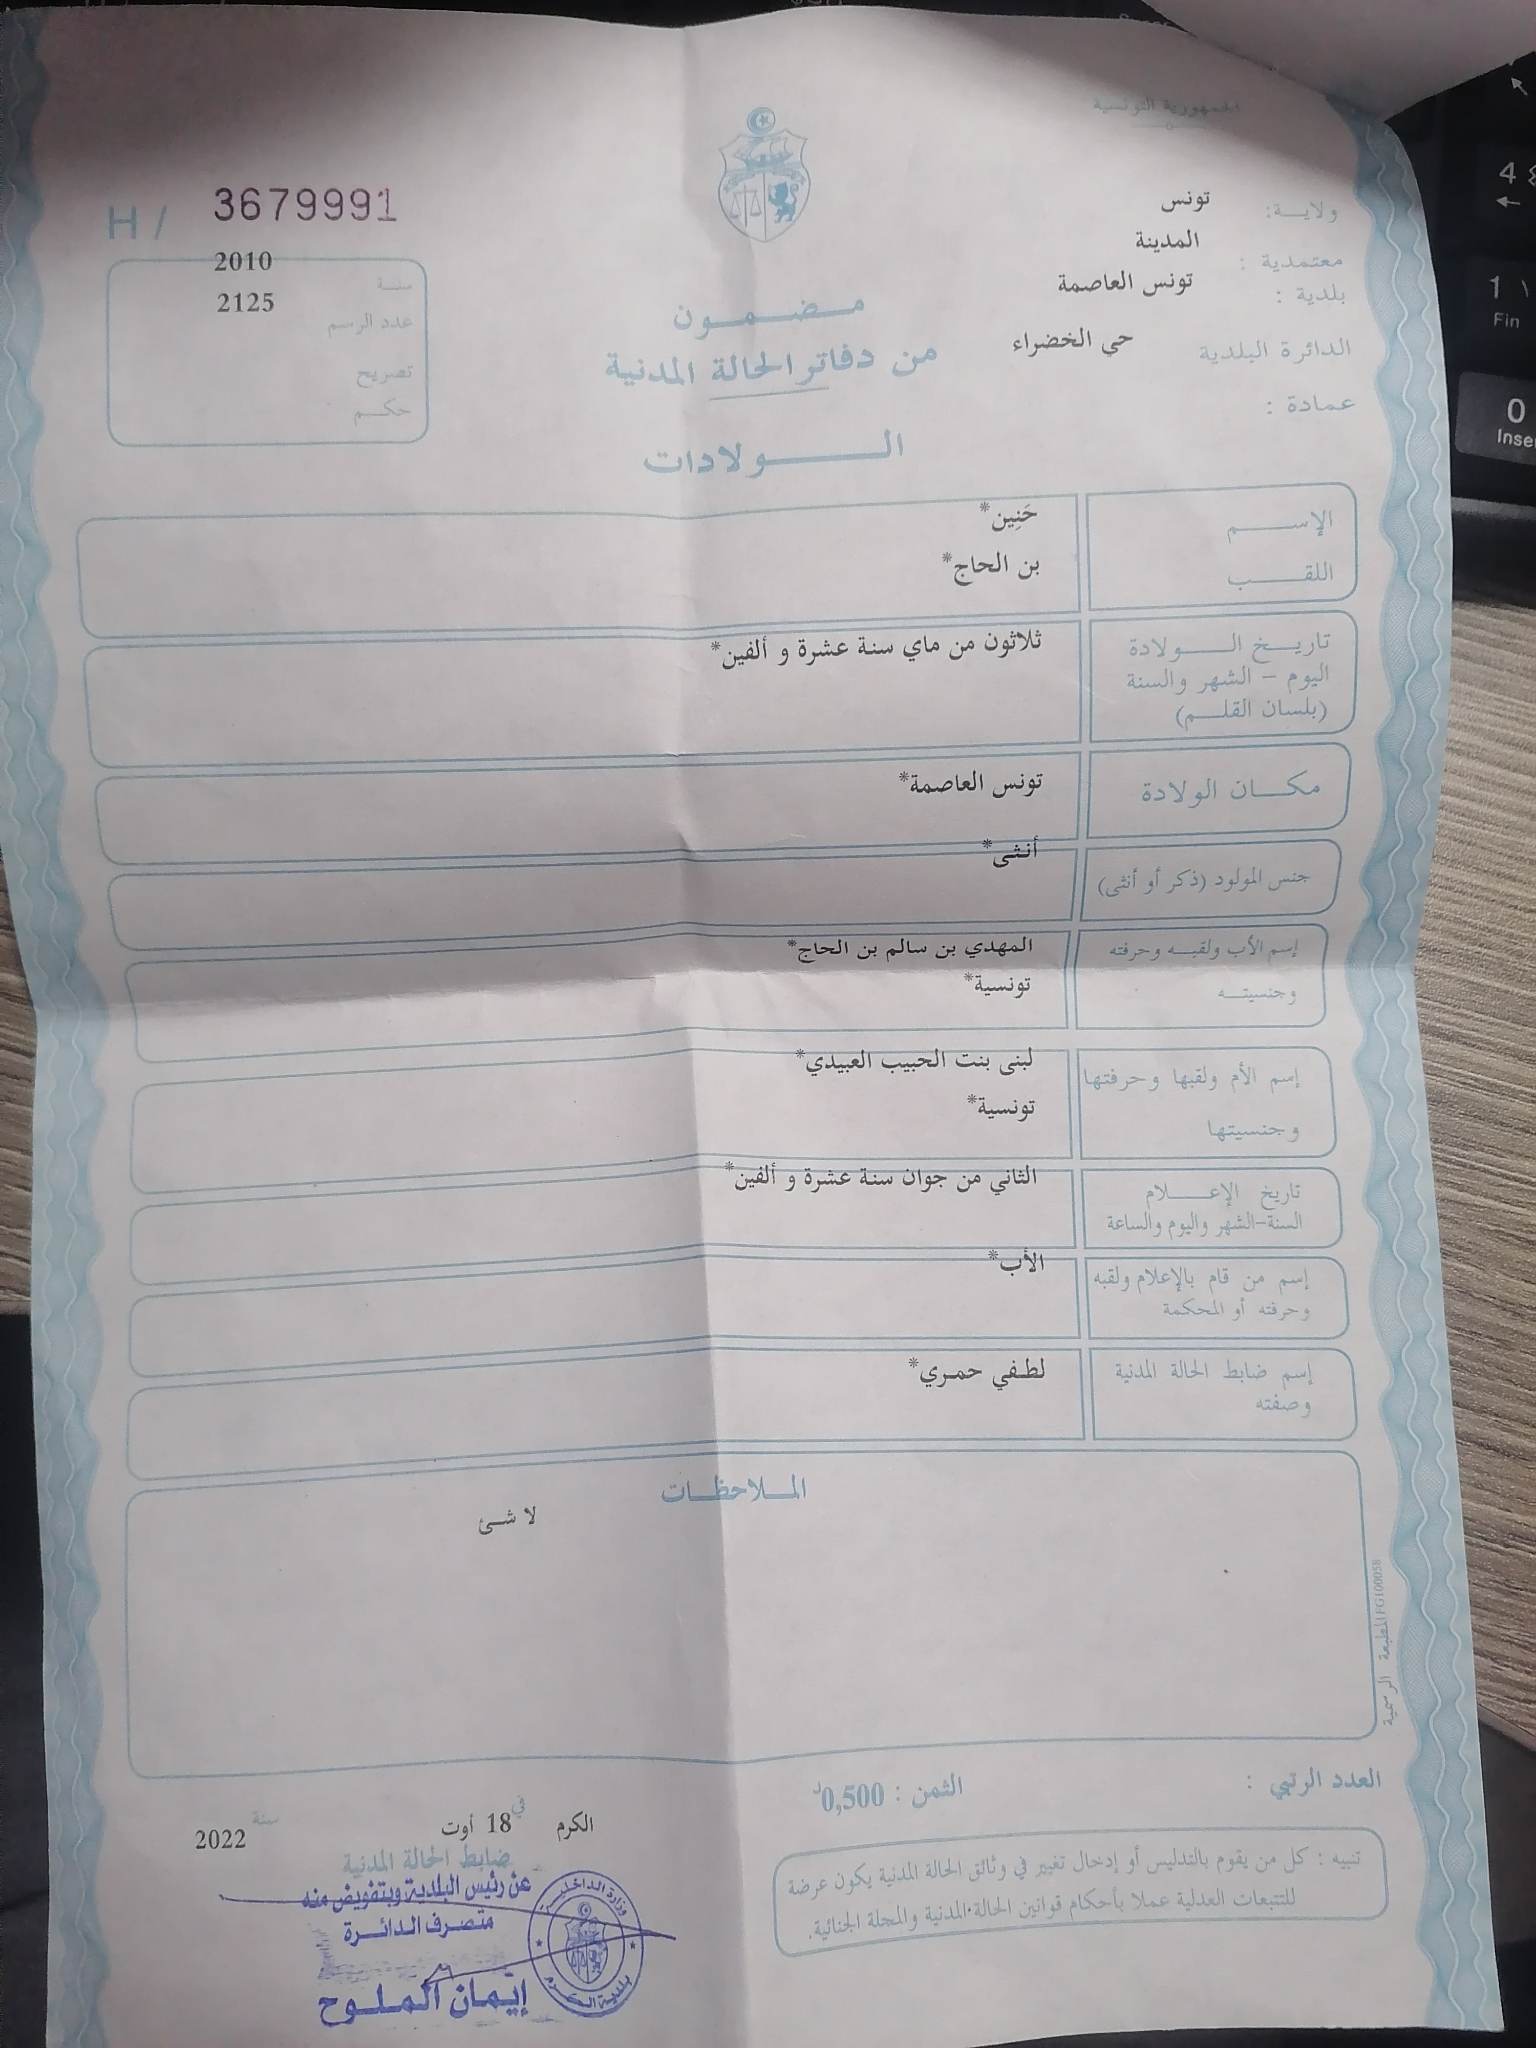 الجمهورية التونسية
ولاية: تونس
معتمدية : المدينة
بلدية : تونس العاصمة
الدائرة البلدية حي الخضراء
عمادة :
H / 3679991
سنة 2010
عدد الرسم 2125
تصريح
حكم
مضمون
من دفاتر الحالة المدنية
الولادات
الإسم حَنِين*
اللقب بن الحاج*
تاريخ الولادة ثلاثون من ماي سنة عشرة و ألفين*
اليوم - الشهر والسنة
(بلسان القلم)
مكان الولادة تونس العاصمة*
جنس المولود (ذكر أو أنثى) أنثى*
إسم الأب ولقبه وحرفته المهدي بن سالم بن الحاج*
وجنسيته تونسية*
إسم الأم ولقبها وحرفتها لبنى بنت الحبيب العبيدي*
وجنسيتها تونسية*
تاريخ الإعلام الثاني من جوان سنة عشرة و ألفين*
السنة-الشهر واليوم والساعة
إسم من قام بالإعلام ولقبه الأب*
وحرفته أو المحكمة
إسم ضابط الحالة المدنية لطفي حمري*
وصفته
الملاحظات
لا شئ
المطبعة الرسمية IFG100058
العدد الرتبي :
الثمن : 0,500د
تنبيه : كل من يقوم بالتدليس أو إدخال تغيير في وثائق الحالة المدنية يكون عرضة
للتتبعات العدلية عملا بأحكام قوانين الحالة المدنية والمجلة الجنائية.
الكرم في 18 أوت سنة 2022
ضابط الحالة المدنية
عن رئيس البلدية وبتفويض منه
متصرف الدائرة
إيمان الملوح
وزارة الداخلية
بلدية الكرم
4 ٤
1 ١
Fin
0
Inse